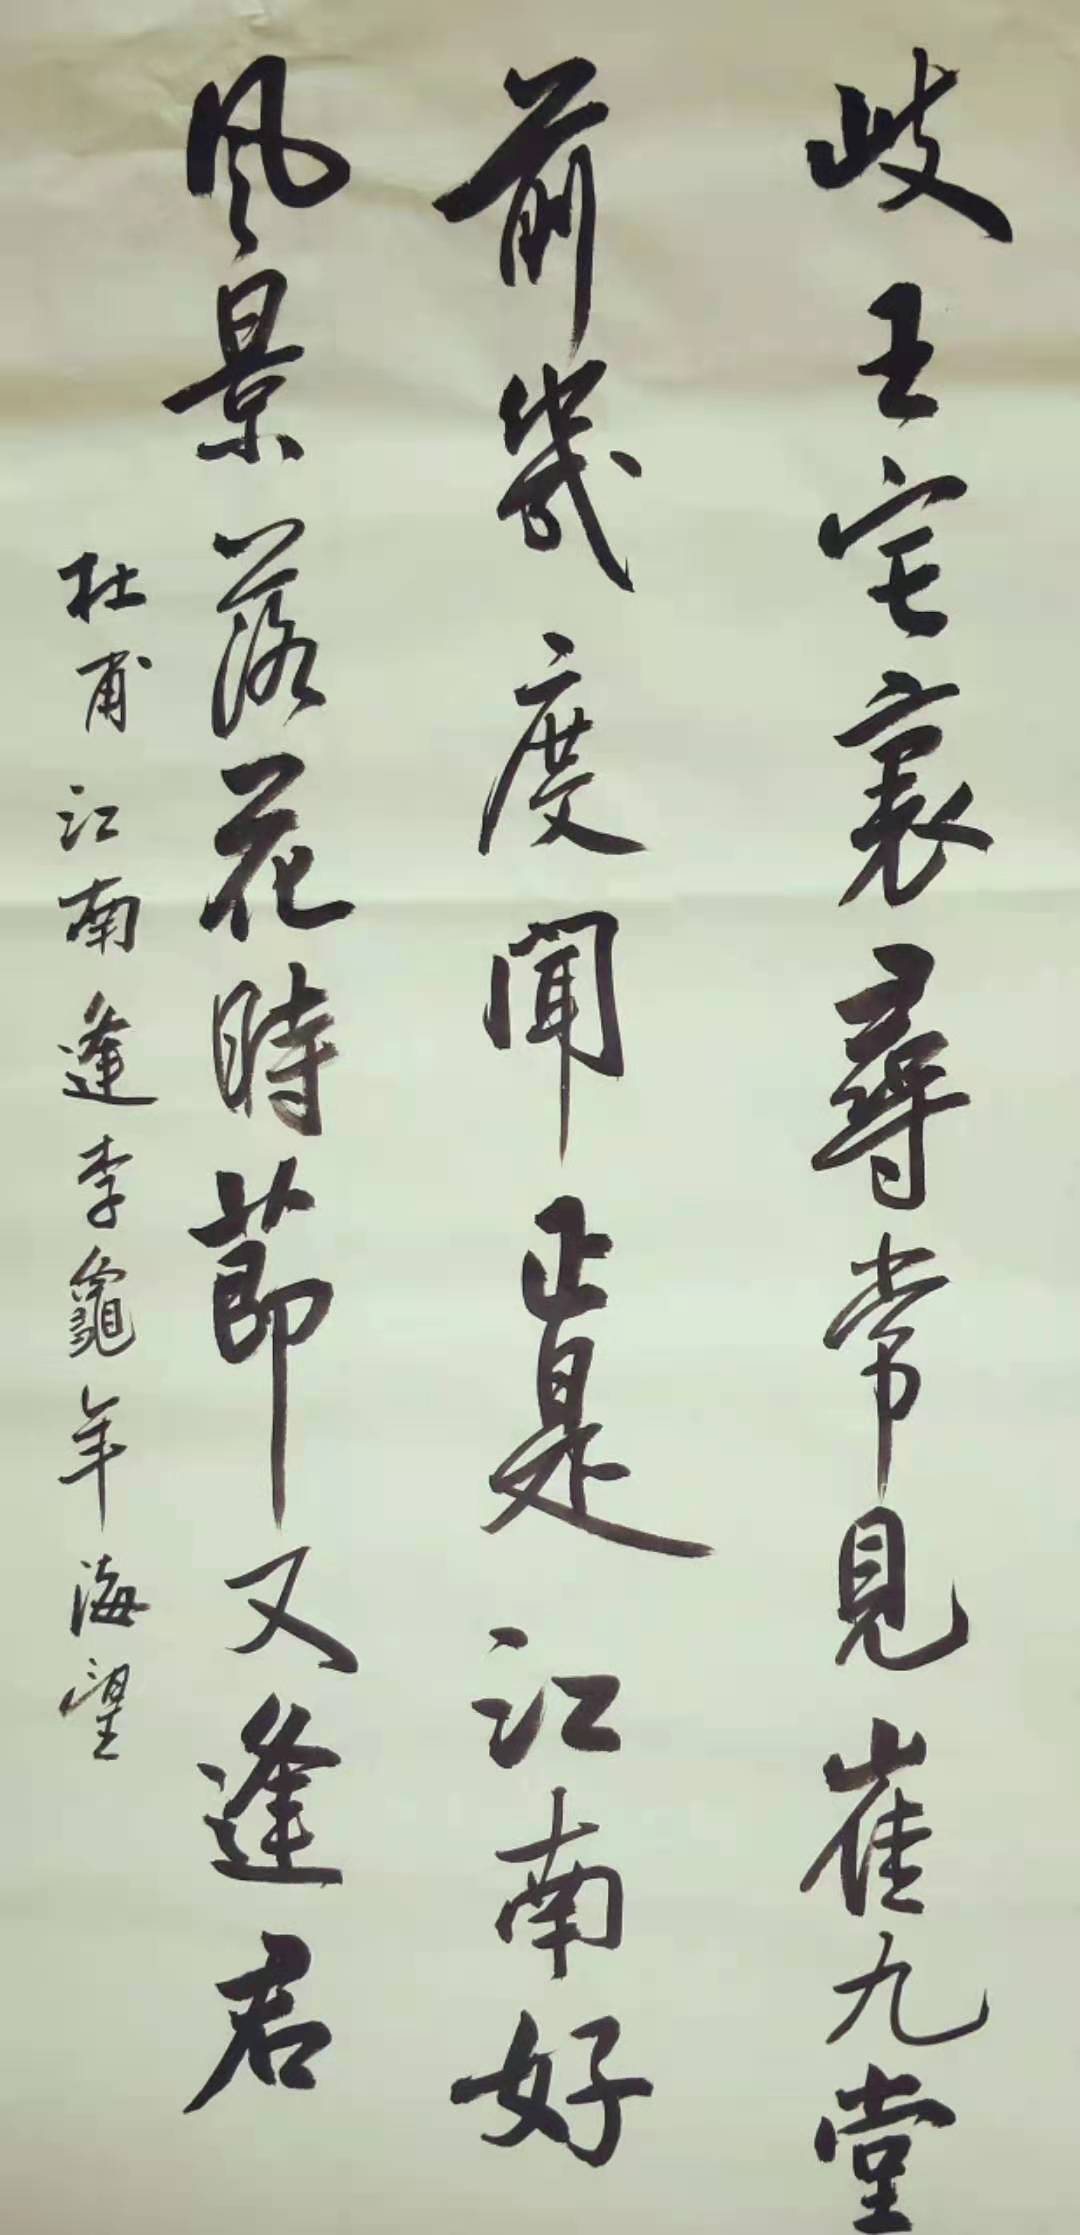 岐王宅裏尋常見崔九堂
前幾度聞正是江南好
风景落花時節又逢君
杜甫江南逢李龜年海望